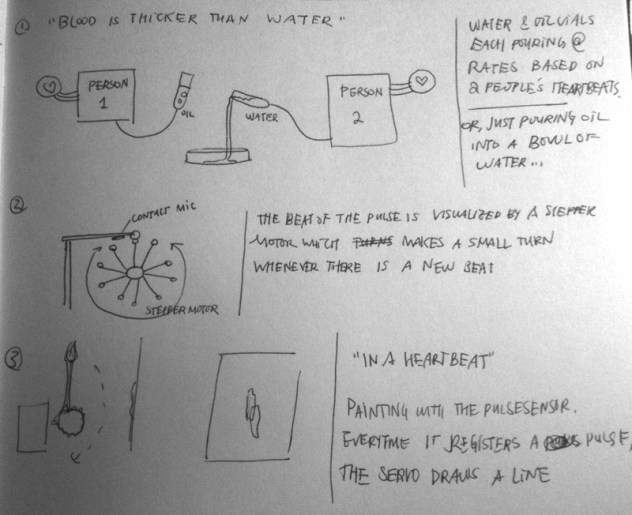 ① "BLOOD IS THICKER THAN WATER"
PERSON
1
OIL
WATER
PERSON
2
WATER & OIL VIALS
EACH POURING @
RATES BASED ON
2 PEOPLE'S HEARTBEATS.
OR, JUST POURING OIL
INTO A BOWL OF
WATER...
②
CONTACT MIC
STEPPER MOTOR
THE BEAT OF THE PULSE IS VISUALIZED BY A STEPPER
MOTOR WHICH TURNS MAKES A SMALL TURN
WHENEVER THERE IS A NEW BEAT
③
"IN A HEARTBEAT"
PAINTING WITH THE PULSESENSOR.
EVERYTIME IT REGISTERS A PULSE,
THE SERVO DRAWS A LINE